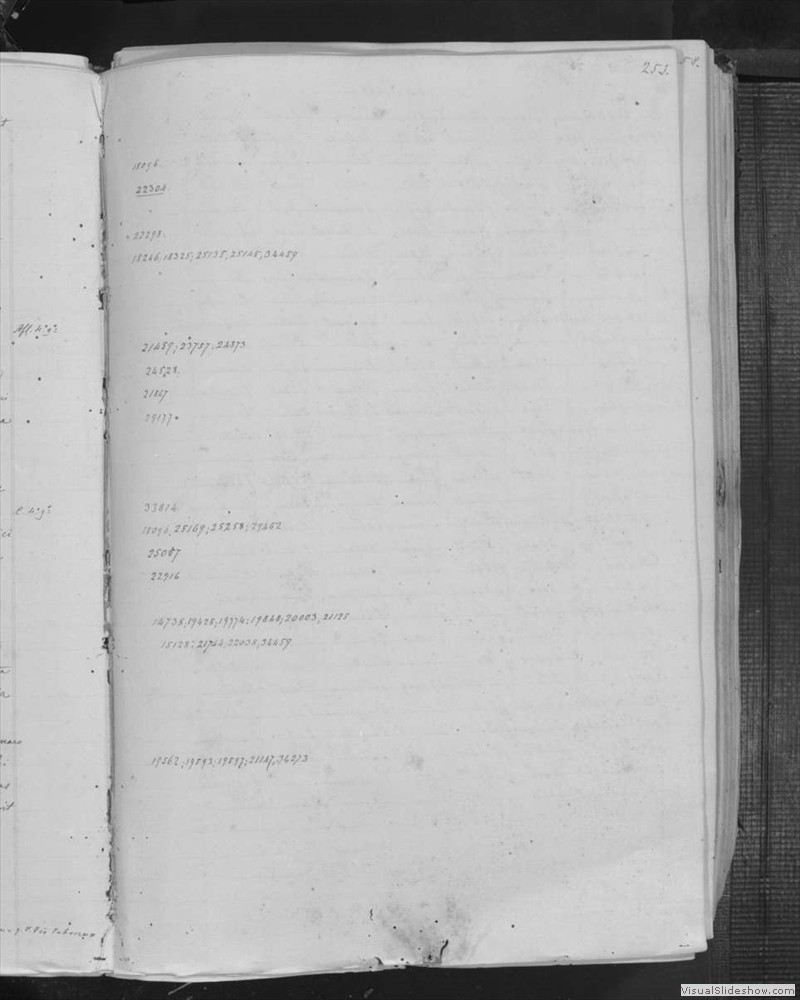 251.
18096
22304.
22298.
18246; 18325; 25135; 25145; 34459
Aff. 4° g°
21489; 23757; 24873
24528.
21867
29177
33814
18096, 25169; 25258; 29462
25087
22916
14738, 19428; 19774; 19848; 20003, 21125
15128; 21744, 22038, 34459
19562; 19593; 19597; 21187, 34273
VisualSlideshow.com